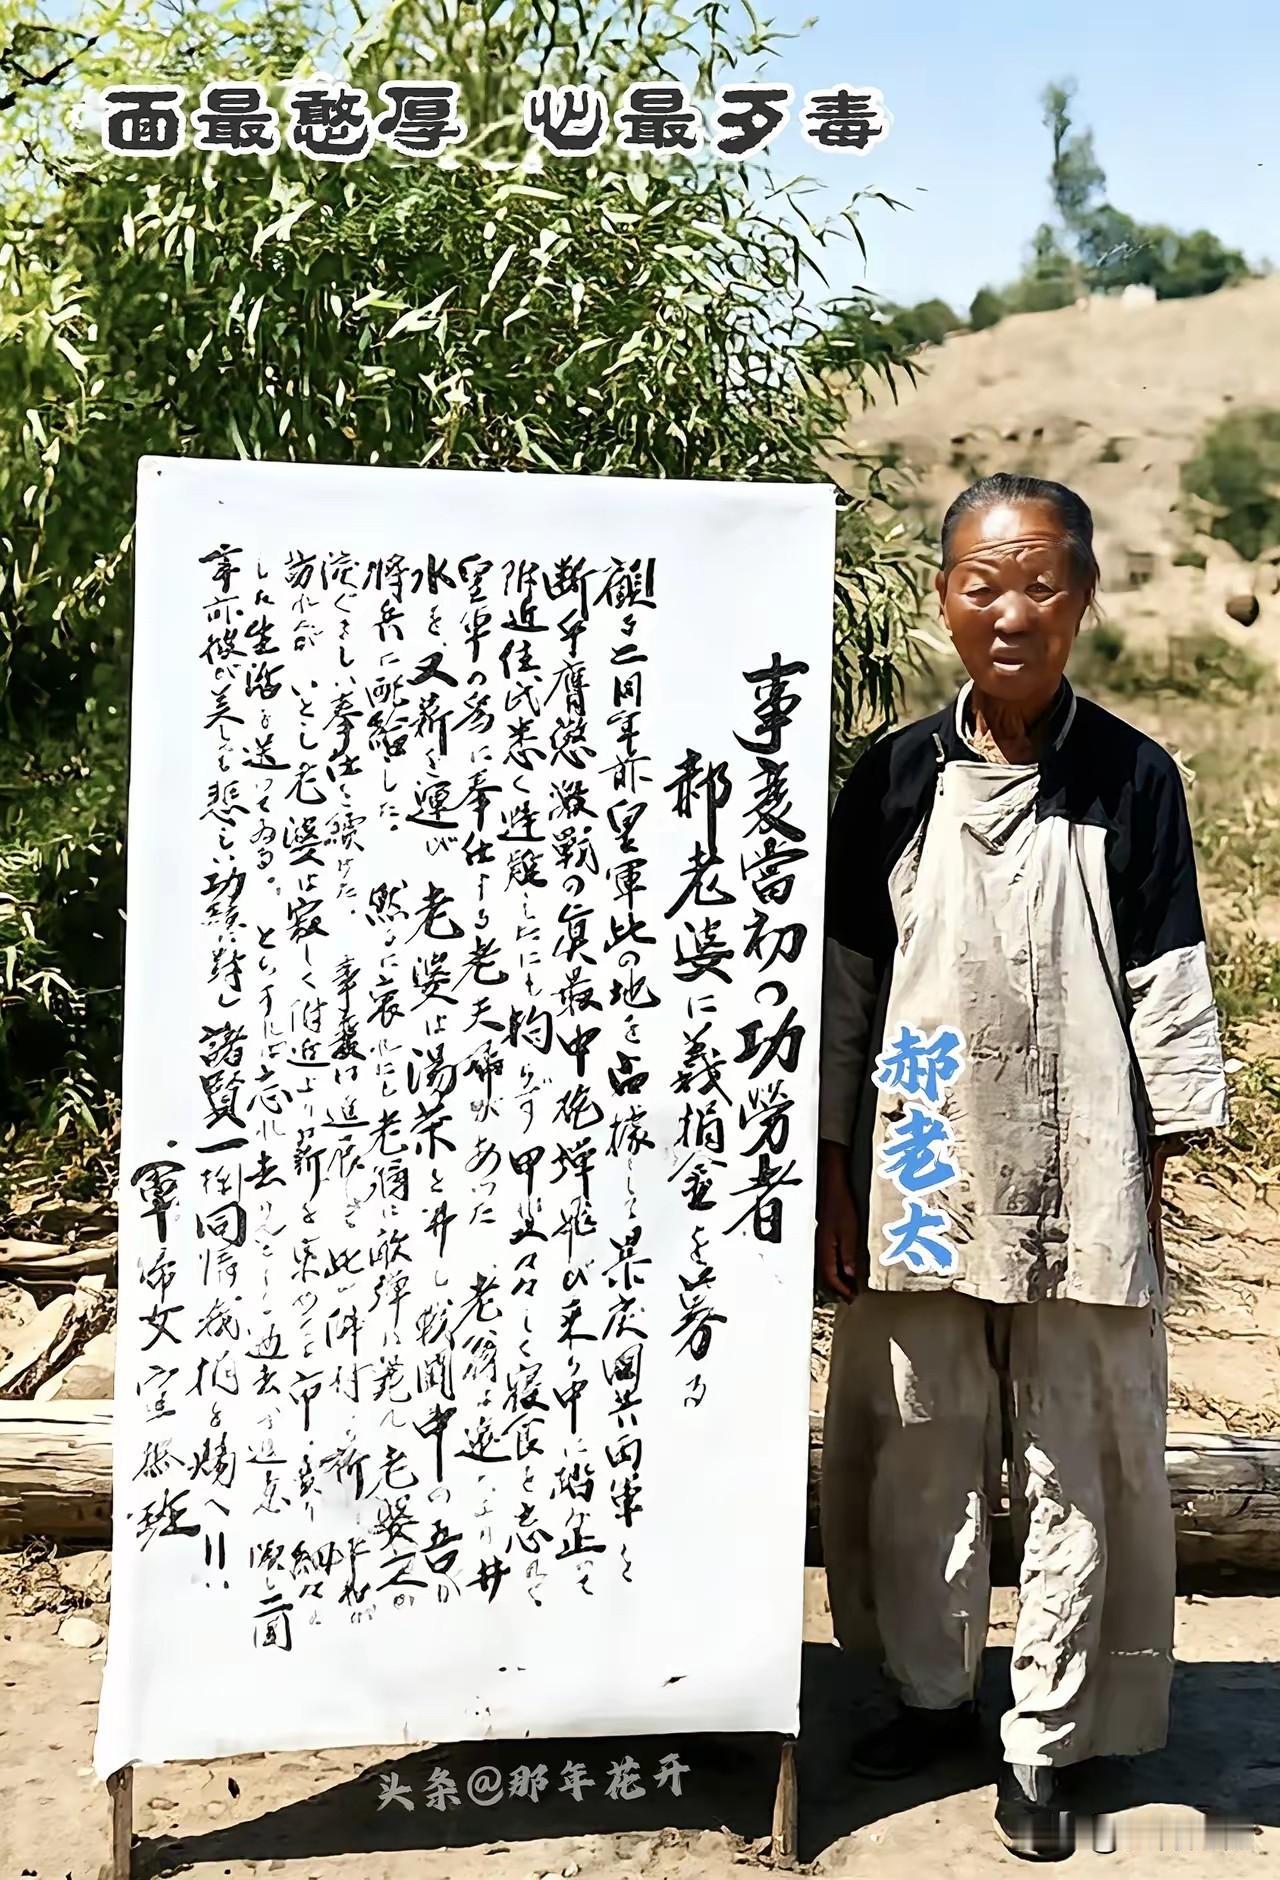 面最憨厚 心最歹毒
事変當初の功勞者
郝老婆に義捐金を募る
顧る二個年前皇軍此の地を占據して暴戻國共両軍を
断乎膺懲激戰の眞最中砲弾飛び来る中に踏止って
附近住民悉く避難したにも拘らず甲斐々々しく寝食を忘れて
皇軍の為に奉仕する老夫婦があった 老翁は遠くより井
水を、又薪を運び 老婆は湯茶を沸し戦闘中の吾が
將兵に配給した。 然るに哀れにも老爺は敵弾に斃れ老婆
奉仕を續けた。 事変は進展
訪れしが いとし老婆は寂しく附近より薪を集めては市
した生活を送ってゐる。 ともすれば忘れ去
事亦彼が美しも悲しい功績に對し 諸賢一掬同情義捐を賜へ!!
軍 婦女宣撫班
郝老太
头条@那年花开